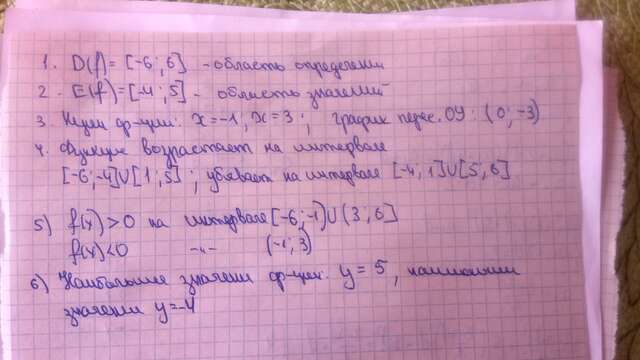 1. D(f) = [-6; 6] - область определения
2 - E(f) = [-4; 5] - область значений
3. Нули ф-ции: x = -1, x = 3; график перес. OY: (0; -3)
4. Функция возрастает на интервале
[-6; -4]∪[1; 5]; убывает на интервале [-4; 1]∪[5, 6]
5) f(x) > 0 на интервале [-6; -1)∪(3; 6]
f(x) < 0 -"- (-1; 3)
6) Наибольшие значени ф-ции: y = 5, наименьшии
значении y = -4